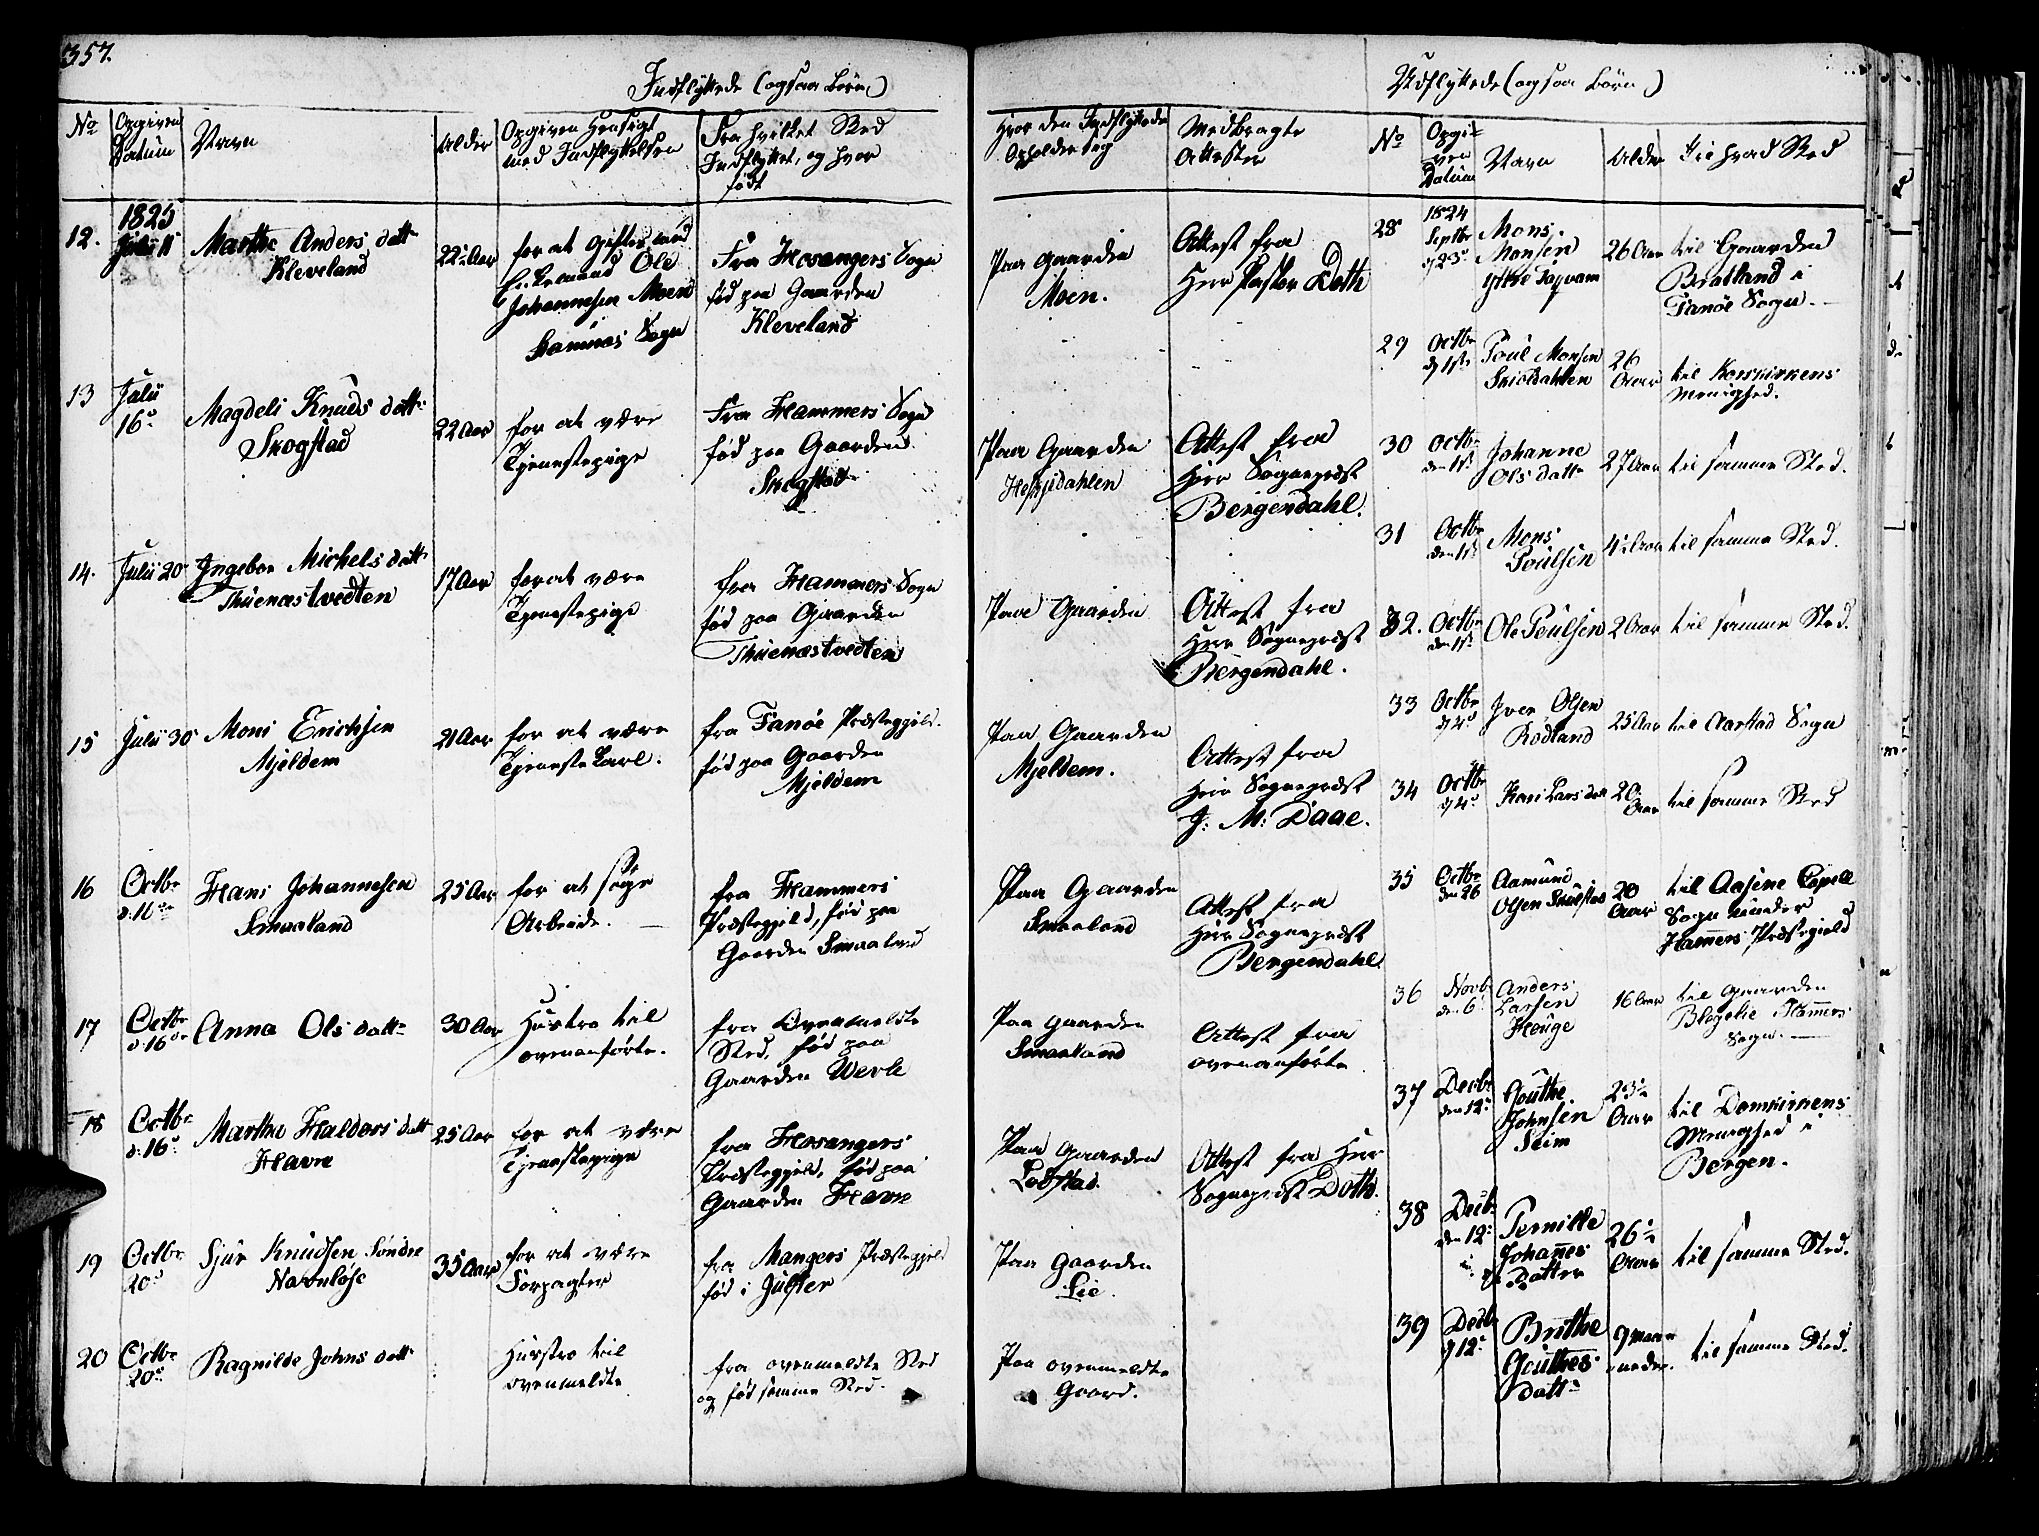 357.
Indflyttede (ogsaa Børn)
No
Opgiven Datum
Navn
Alder
Opgiven Hensigt
med Indflyttelsen
Fra hvilket Sted
Indflyttet, og hvor
født
Hvor den Indflyttede
Opholder sig
Medbragte
Attester
12.
1825
Julii 11
Marthe Anders datt
Kleveland
22 Aar
for at giftes med
Ole
Johannesen Moen
Hamnæs Sogn
Fra Hosangers Sogn
fød paa Gaarden
Kleveland
Paa Gaarden
Moen.
Attest fra
Herr Pastor Doth
13
Julii
16
Magdeli Knuds datt
Skogstad
22 Aar
for at være
Tjenestepige
Fra Hammers Sogn
fød paa Gaarden
Skogstad
Paa Gaarden
Hesjedahlen
Attest fra
Herr Sognepræst
Bergendahl.
14.
Julii 20
Ingebor Michels datt
Thuenæstvedten
17 Aar
for at være
Tjenestepige
fra Hammers Sogn
fød paa Gaarden
Thuenæstvedten
Paa Gaarden
Attest fra
Herr Sognepræst
Bergendahl.
15
Julii 30
Mons Erichsen
Mjeldem
21 Aar
for at være
Tjeneste Karl.
fra Fanøe Præstegjeld.
fød paa Gaarden
Mjeldem
Paa Gaarden
Mjeldem.
Attest fra
Herr Sognepræst
J: M: Daae.
16
Octbr
d: 16de
Hans Johannesen
Smaaland
25 Aar
for at søge
Arbeide.
fra Hammers
Præstegjeld, fød paa
Gaarden Smaaland
Paa Gaarden
Smaaland
Attest fra
Herr Sognepræst
Bergendahl.
17
Octbr
d: 16de
Anna Ols datt
30 Aar
Hustro til
ovenanførte.
fra Ovenmeldte
Sted, fød paa
Gaarden Werle
Paa Gaarden
Smaaland
Attest fra
ovenanførte
18
Octbr
d: 16
Marthe Haldors datt
Havre
25 Aar
for at være
Tjenestepige
fra Hosangers
Præstegjeld, fød paa
Gaarden Havre
Paa Gaarden
Lodstad.
Attest fra Herr
Sognepræst Doth.
19
Octbr
20
Sjur Knudsen Søndre
Navnløse
35 Aar
for at være
Forpagter
fra Mangers Præstegjeld
fød i Jülster
Paa Gaarden
Lie.
20
Octbr
20
Ragnilde Johns datt
Hustro til
ovenmeldte
fra ovenmeldte Sted
og fød samme Sted.
Paa ovenmeldte
Gaard.
Udflyttede (ogsaa Børn)
No
Opgiven
Datum
Navn
Alder
Til hvad Sted
28
1824
Septbr
d 23
Mons
Monsen
26 Aar
til Gaarden
Bratland i
Fanøe Sogn.
29
Octbr
d 1ste
Poul Monsen
Skioldahlen
26
Aar
til Korskirkens
Menighed.
30
Octbr
den 1st
Johanne
Ols datt
27 Aar
til samme Sted.
31
Octbr
den 1st
Mons
Poulsen
4 Aar
til samme Sted.
32.
Octbr
den 1st
Ole Poulsen
2 Aar
til samme Sted.
33
Octbr
d 4
Iver Olsen
Rødland
25 Aar
til Aarstad Sogn
34
Octbr
d 4
Kari Lars datt
20
Aar
til samme Sted
35
Octbr
den 26
Aamund
Olsen
20
Aar
til Aasene Capell
Sogn under
Hamers Præstegield
36
Novb
den 6
Anders
Larsen
Houge
16 Aar
til Gaarden
Blegelie Hamers
Sogn.
37
Decbr
den 12
Gouthe
Johnsen
Seim
23
Aar
til Domkirkens
Menighed i
Bergen.
38
Decbr
den 12
Pernille
Johanes
Datter
26
Aar
til samme Sted.
39
Decbr
d 12
Brithe
Gouthes
datt
9 Maaneder.
til samme Sted.